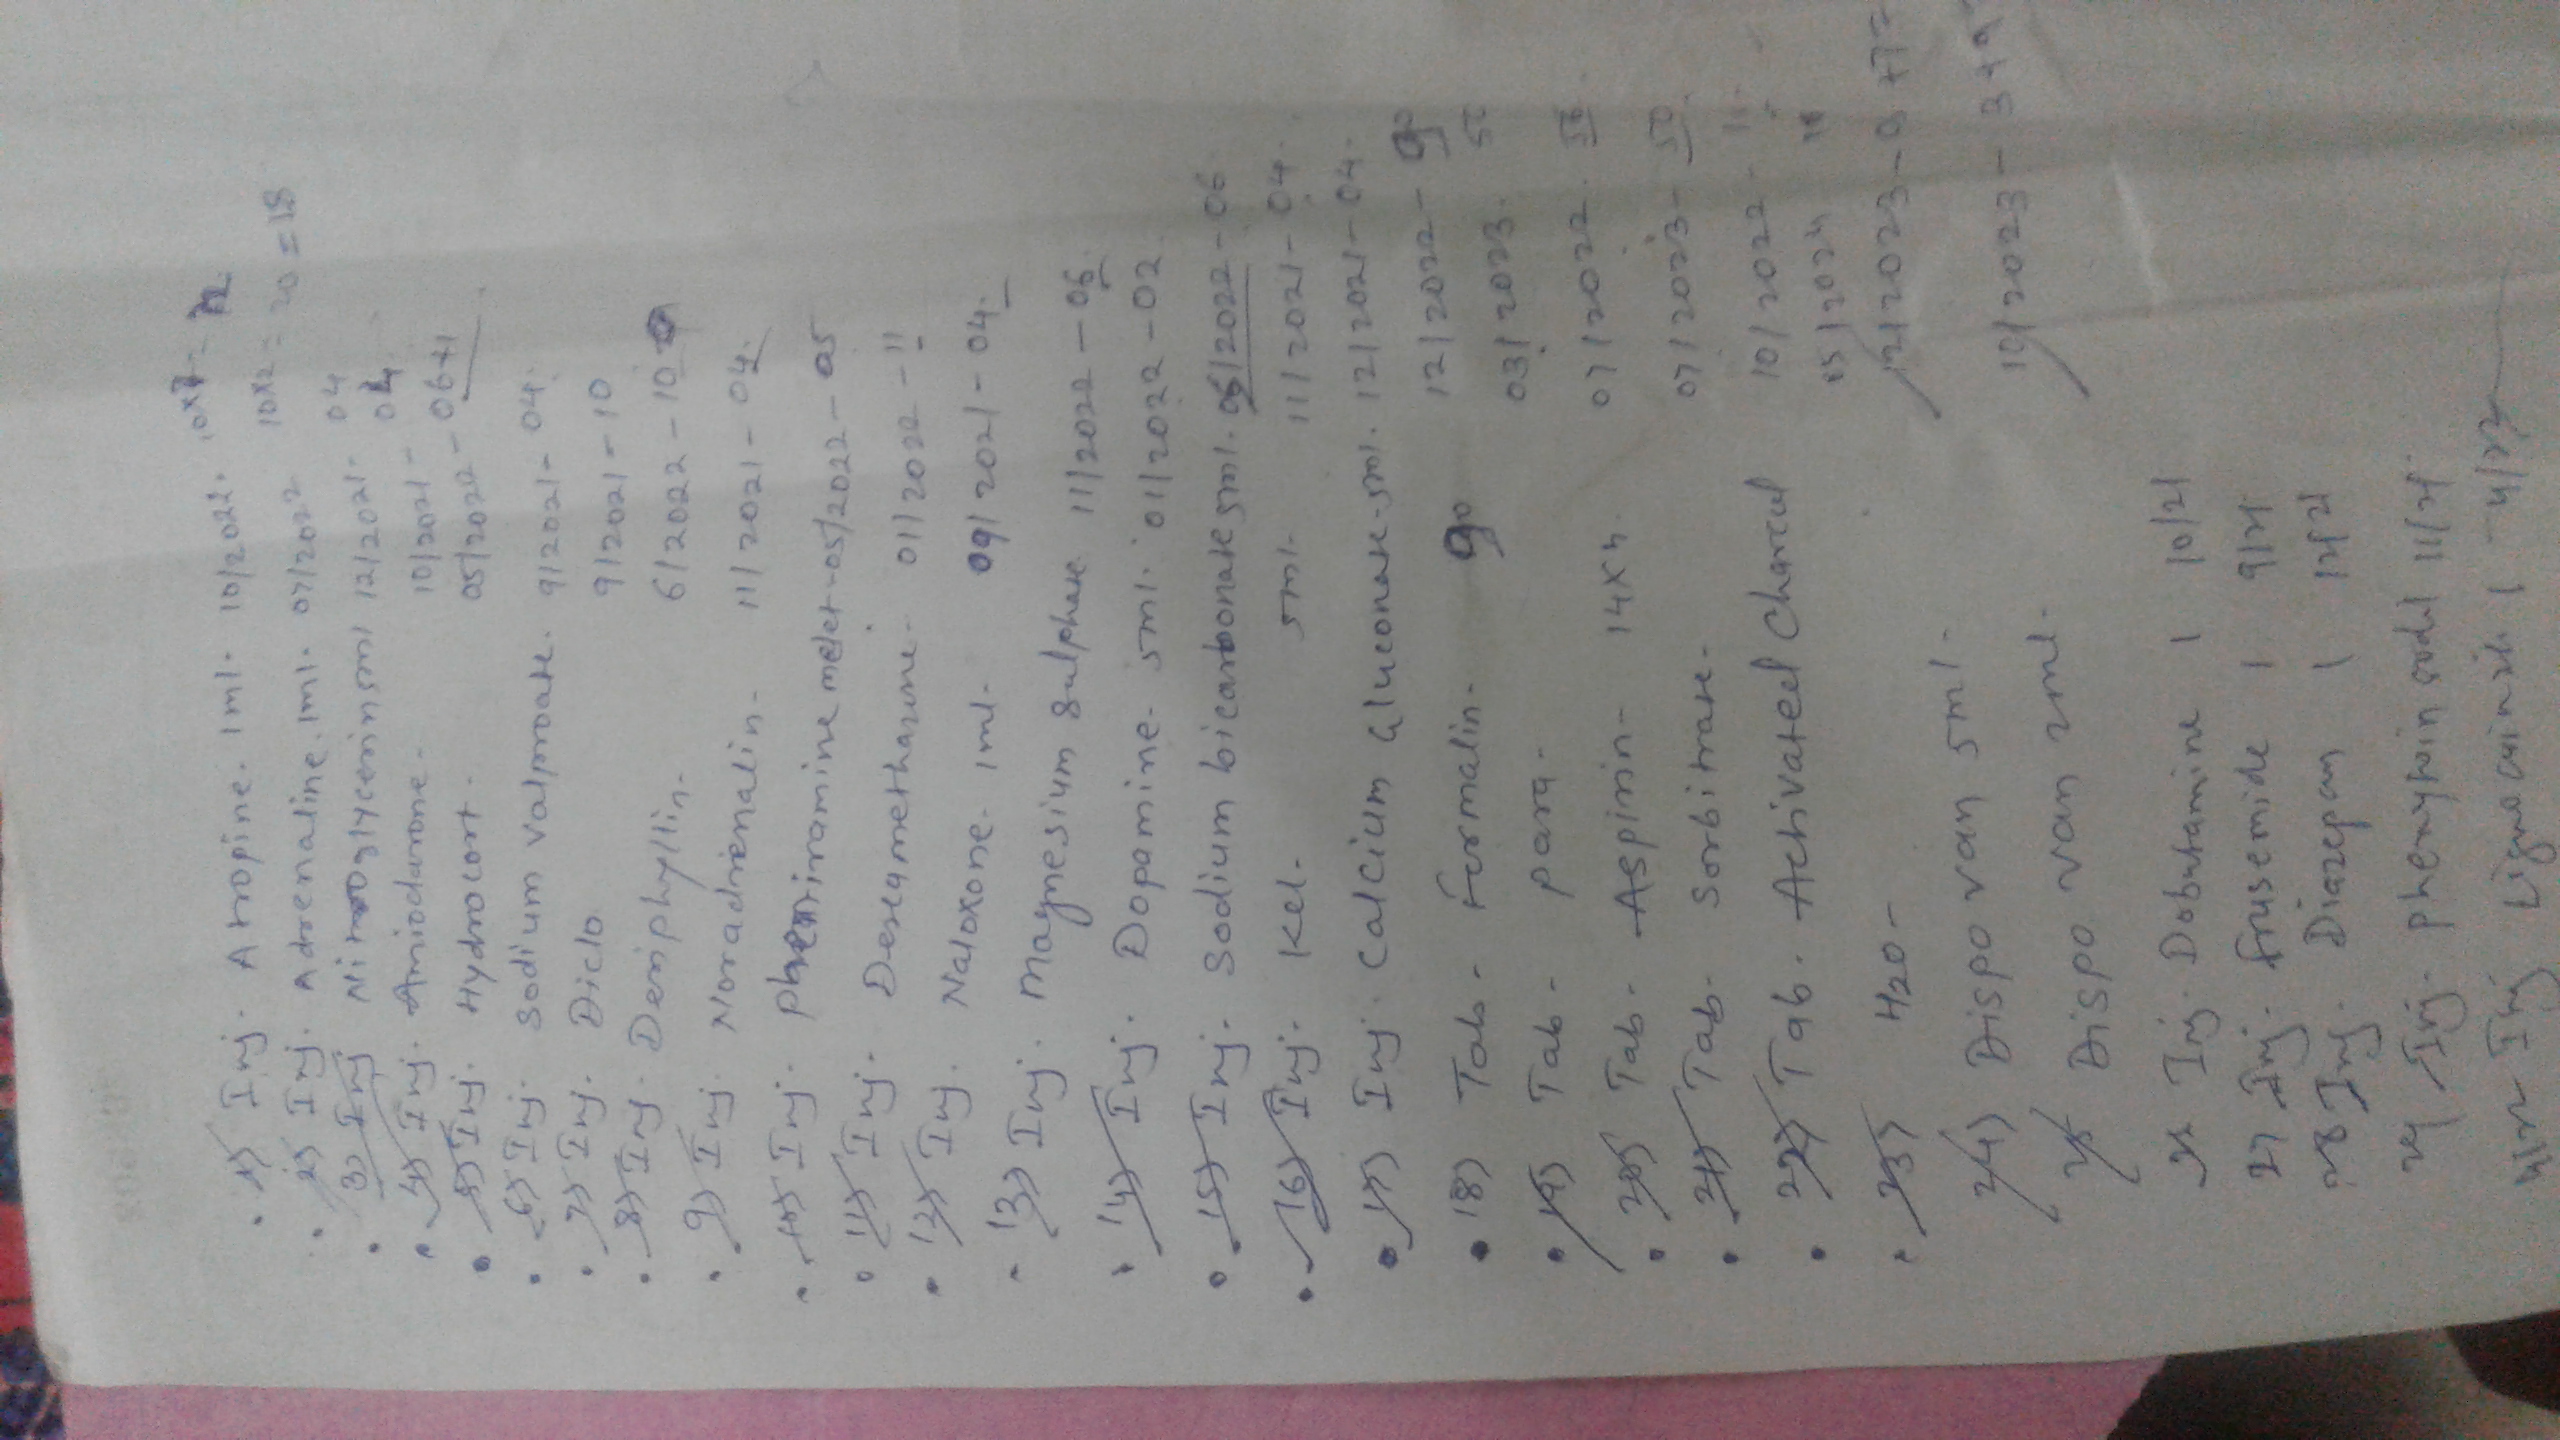 1) Inj. Atropine. 1ml. 10/2022. 10x7 =
2) Inj. Adrenaline. 1ml. 07/2022 10x2 = 20 = 18
3) Inj Nitroglycerin 5ml 12/2021 - 04
4) Inj. Amiodarone - 10/2021 - 04
5) Inj. Hydrocort. 05/2022 - 06+1
6) Inj. Sodium valproate. 9/2021 - 04.
7) Inj. Diclo 9/2021 - 10
8) Inj. Deriphyllin. 6/2022 - 10
9) Inj. Noradrenalin - 11/2021 - 04.
10) Inj. pheniramine melet - 05/2022 - 05
11) Inj. Dexamethasone - 01/2022 - 11
12) Inj. Naloxone. 1ml. 09/2021 - 04.
13) Inj. Magnesium Sulphate. 11/2022 - 06.
14) Inj. Dopamine. 5ml. 01/2022 - 02
15) Inj. Sodium bicarbonate 5ml. 05/2022 - 06
16) Inj. Kcl. 5ml. 11/2021 - 04.
17) Inj. Calcium Gluconate - 5ml. 12/2021 - 04.
18) Tab - Formalin. 90 12/2022 - 90
19) Tab - para - 03/2023. 50
20) Tab - Aspirin - 14x4. 07/2022. 56
21) Tab - Sorbitrate - 07/2023 - 50
22) Tab. Activated Charcul 10/2022 - 11
23) H20 - 05/2024
24) Dispo van 5ml - 12/2023 - 9 +7=
25 Dispo van 2ml. 10/2023 - 3+9
Inj. Dobutamine 1 10/21
27 Inj. frusemide 1 9/21
28 Inj. Diazepam 1 12/21
29 Inj. phenytoin sodi 11/21
Inj 1 - 4/22